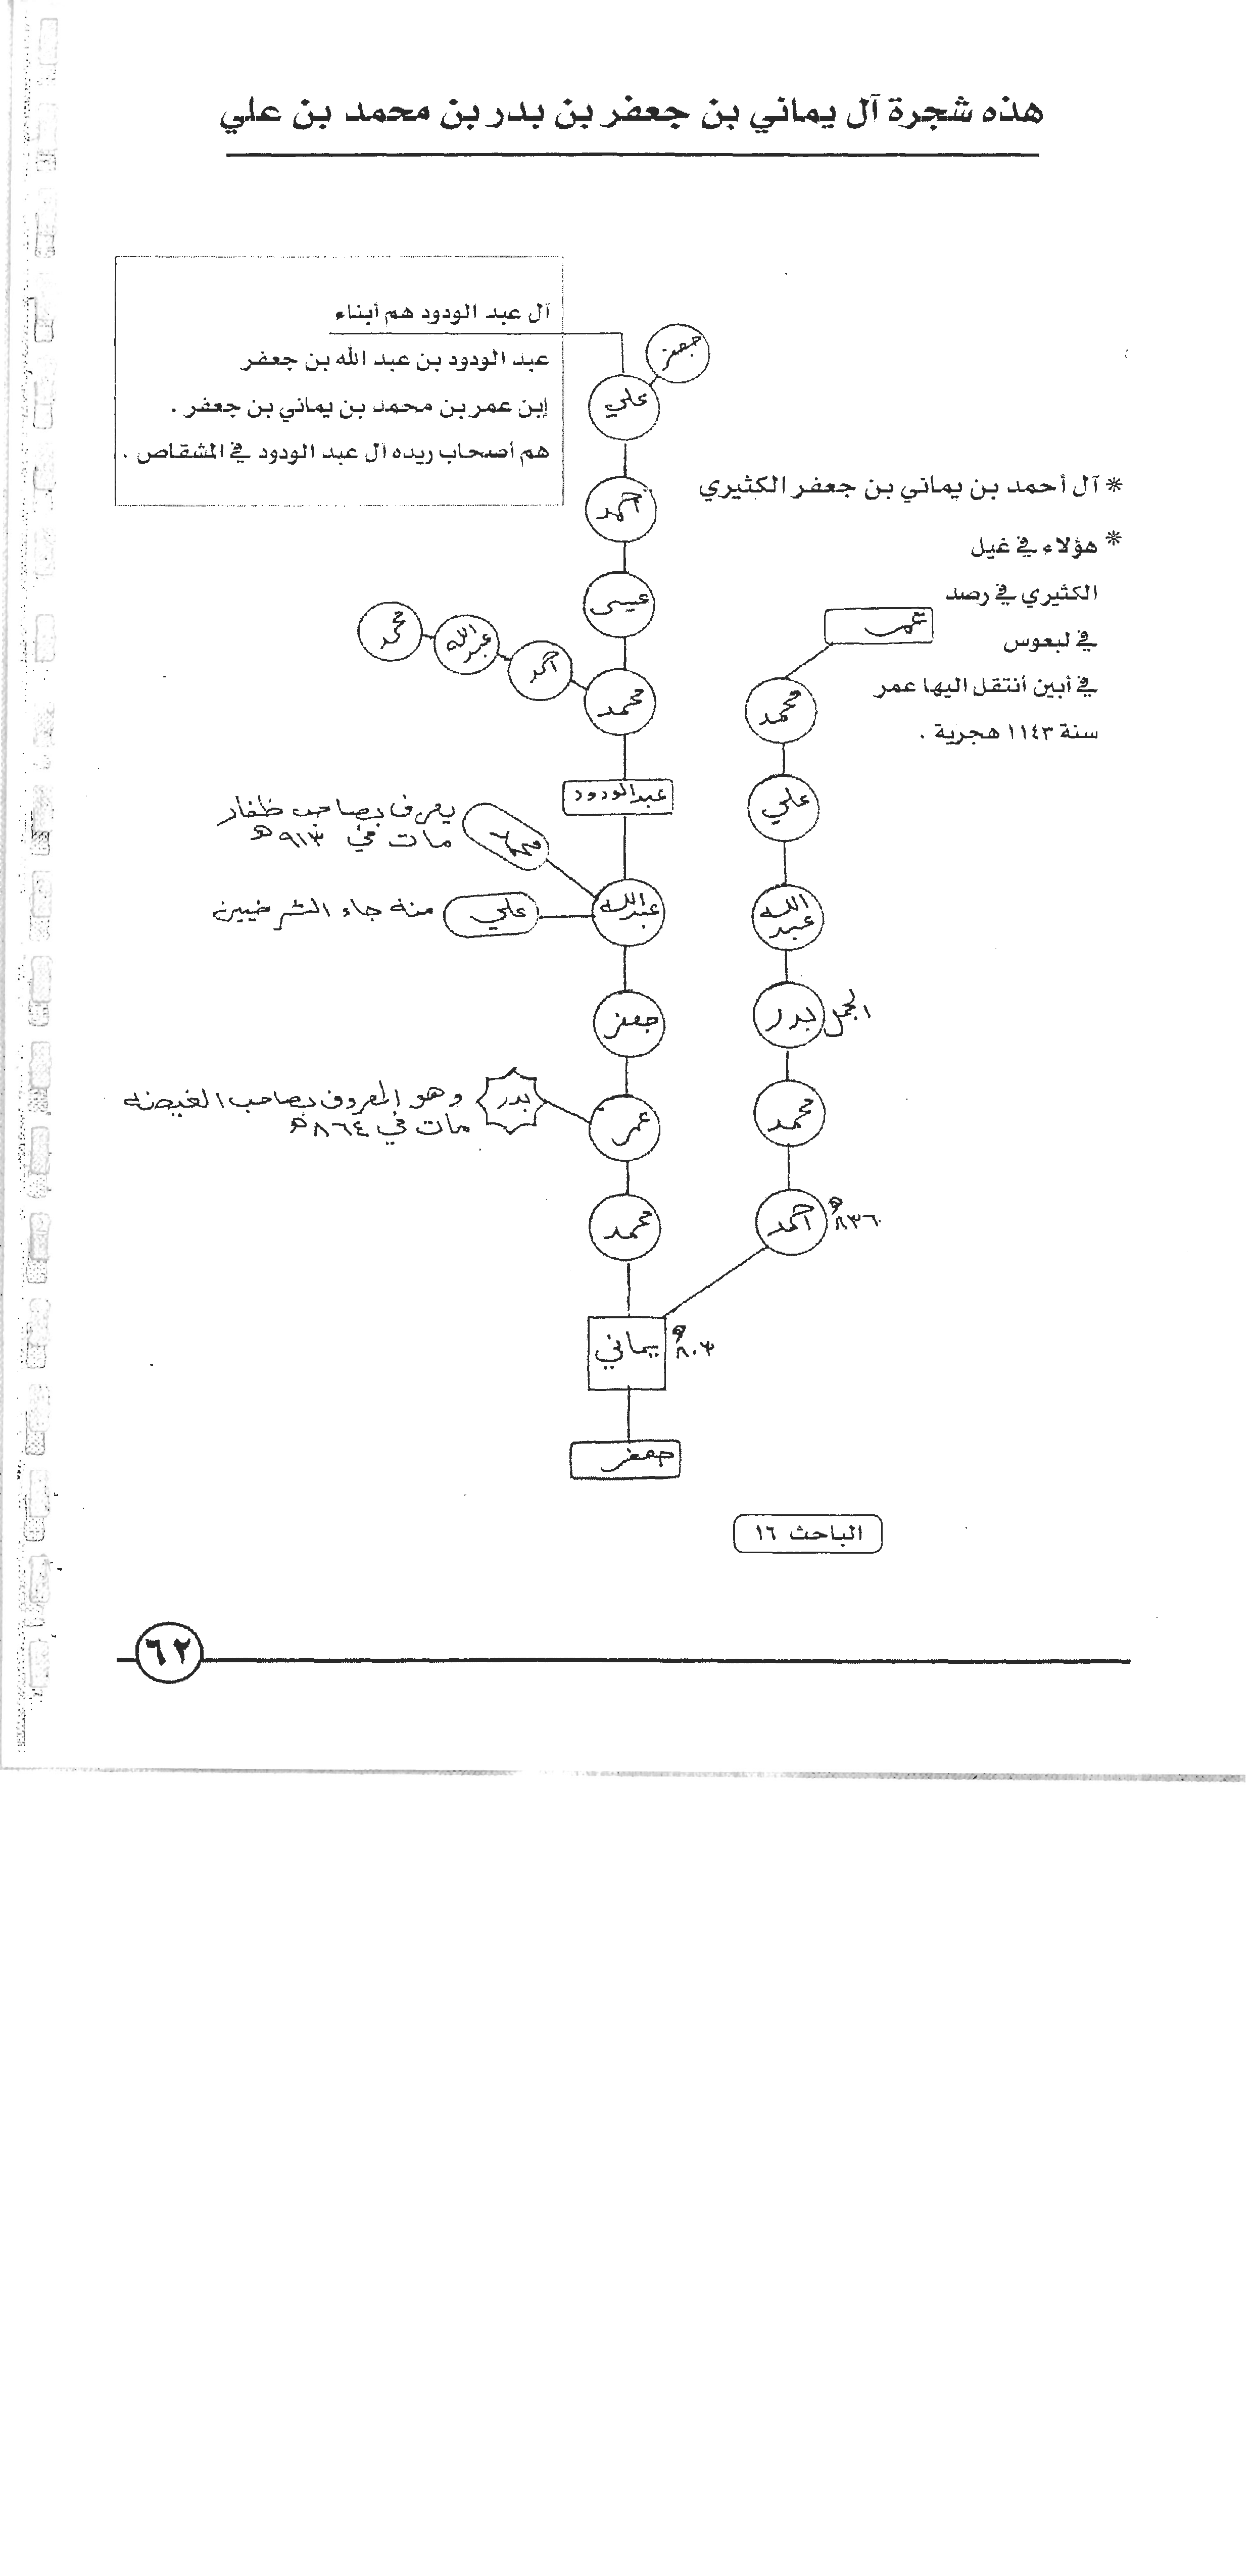 هذه شجرة آل يماني بن جعفر بن بدر بن محمد بن علي
آل عبد الودود هم أبناء
عبد الودود بن عبد الله بن جعفر
إبن عمر بن محمد بن يماني بن جعفر .
هم أصحاب ريده آل عبد الودود في المشقاص .
* آل أحمد بن يماني بن جعفر الكثيري
* هؤلاء في غيل
الكثيري في رصد
في لبعوس
في أبين أنتقل اليها عمر
سنة ١١٤٣ هجرية .
جعفر
علي
احمد
عيسى
محمد
احمد
عبدالله
محمد
عبدالودود
محمد
يعرف بصاحب ظفار
مات في ٩١٣ه
عبدالله
علي
منه جاء الشرخيين
جعفر
عمر
بدر
وهو المعروف بصاحب الغيضه
مات في ٨٦٤ه
محمد
يماني
٨٠٣ه
جعفر
عمر
محمد
علي
عبد الله
بدر
الجمل
محمد
احمد
٨٣٦ه
الباحث ١٦
٦٢